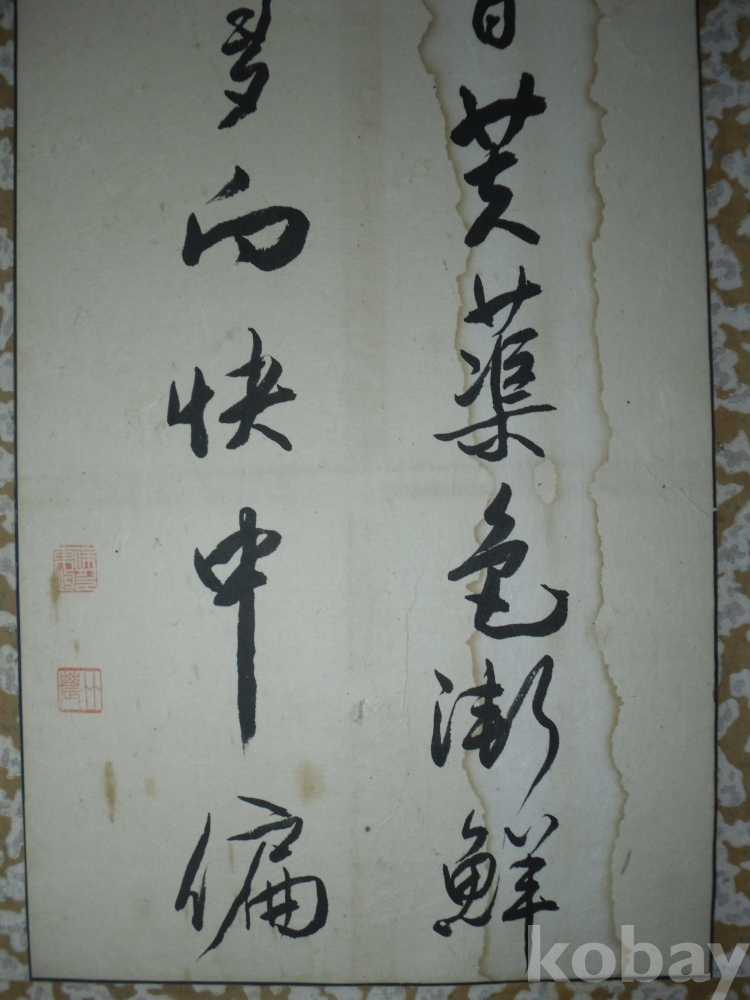 芙蕖色漸鮮
多向快中偏
kobay